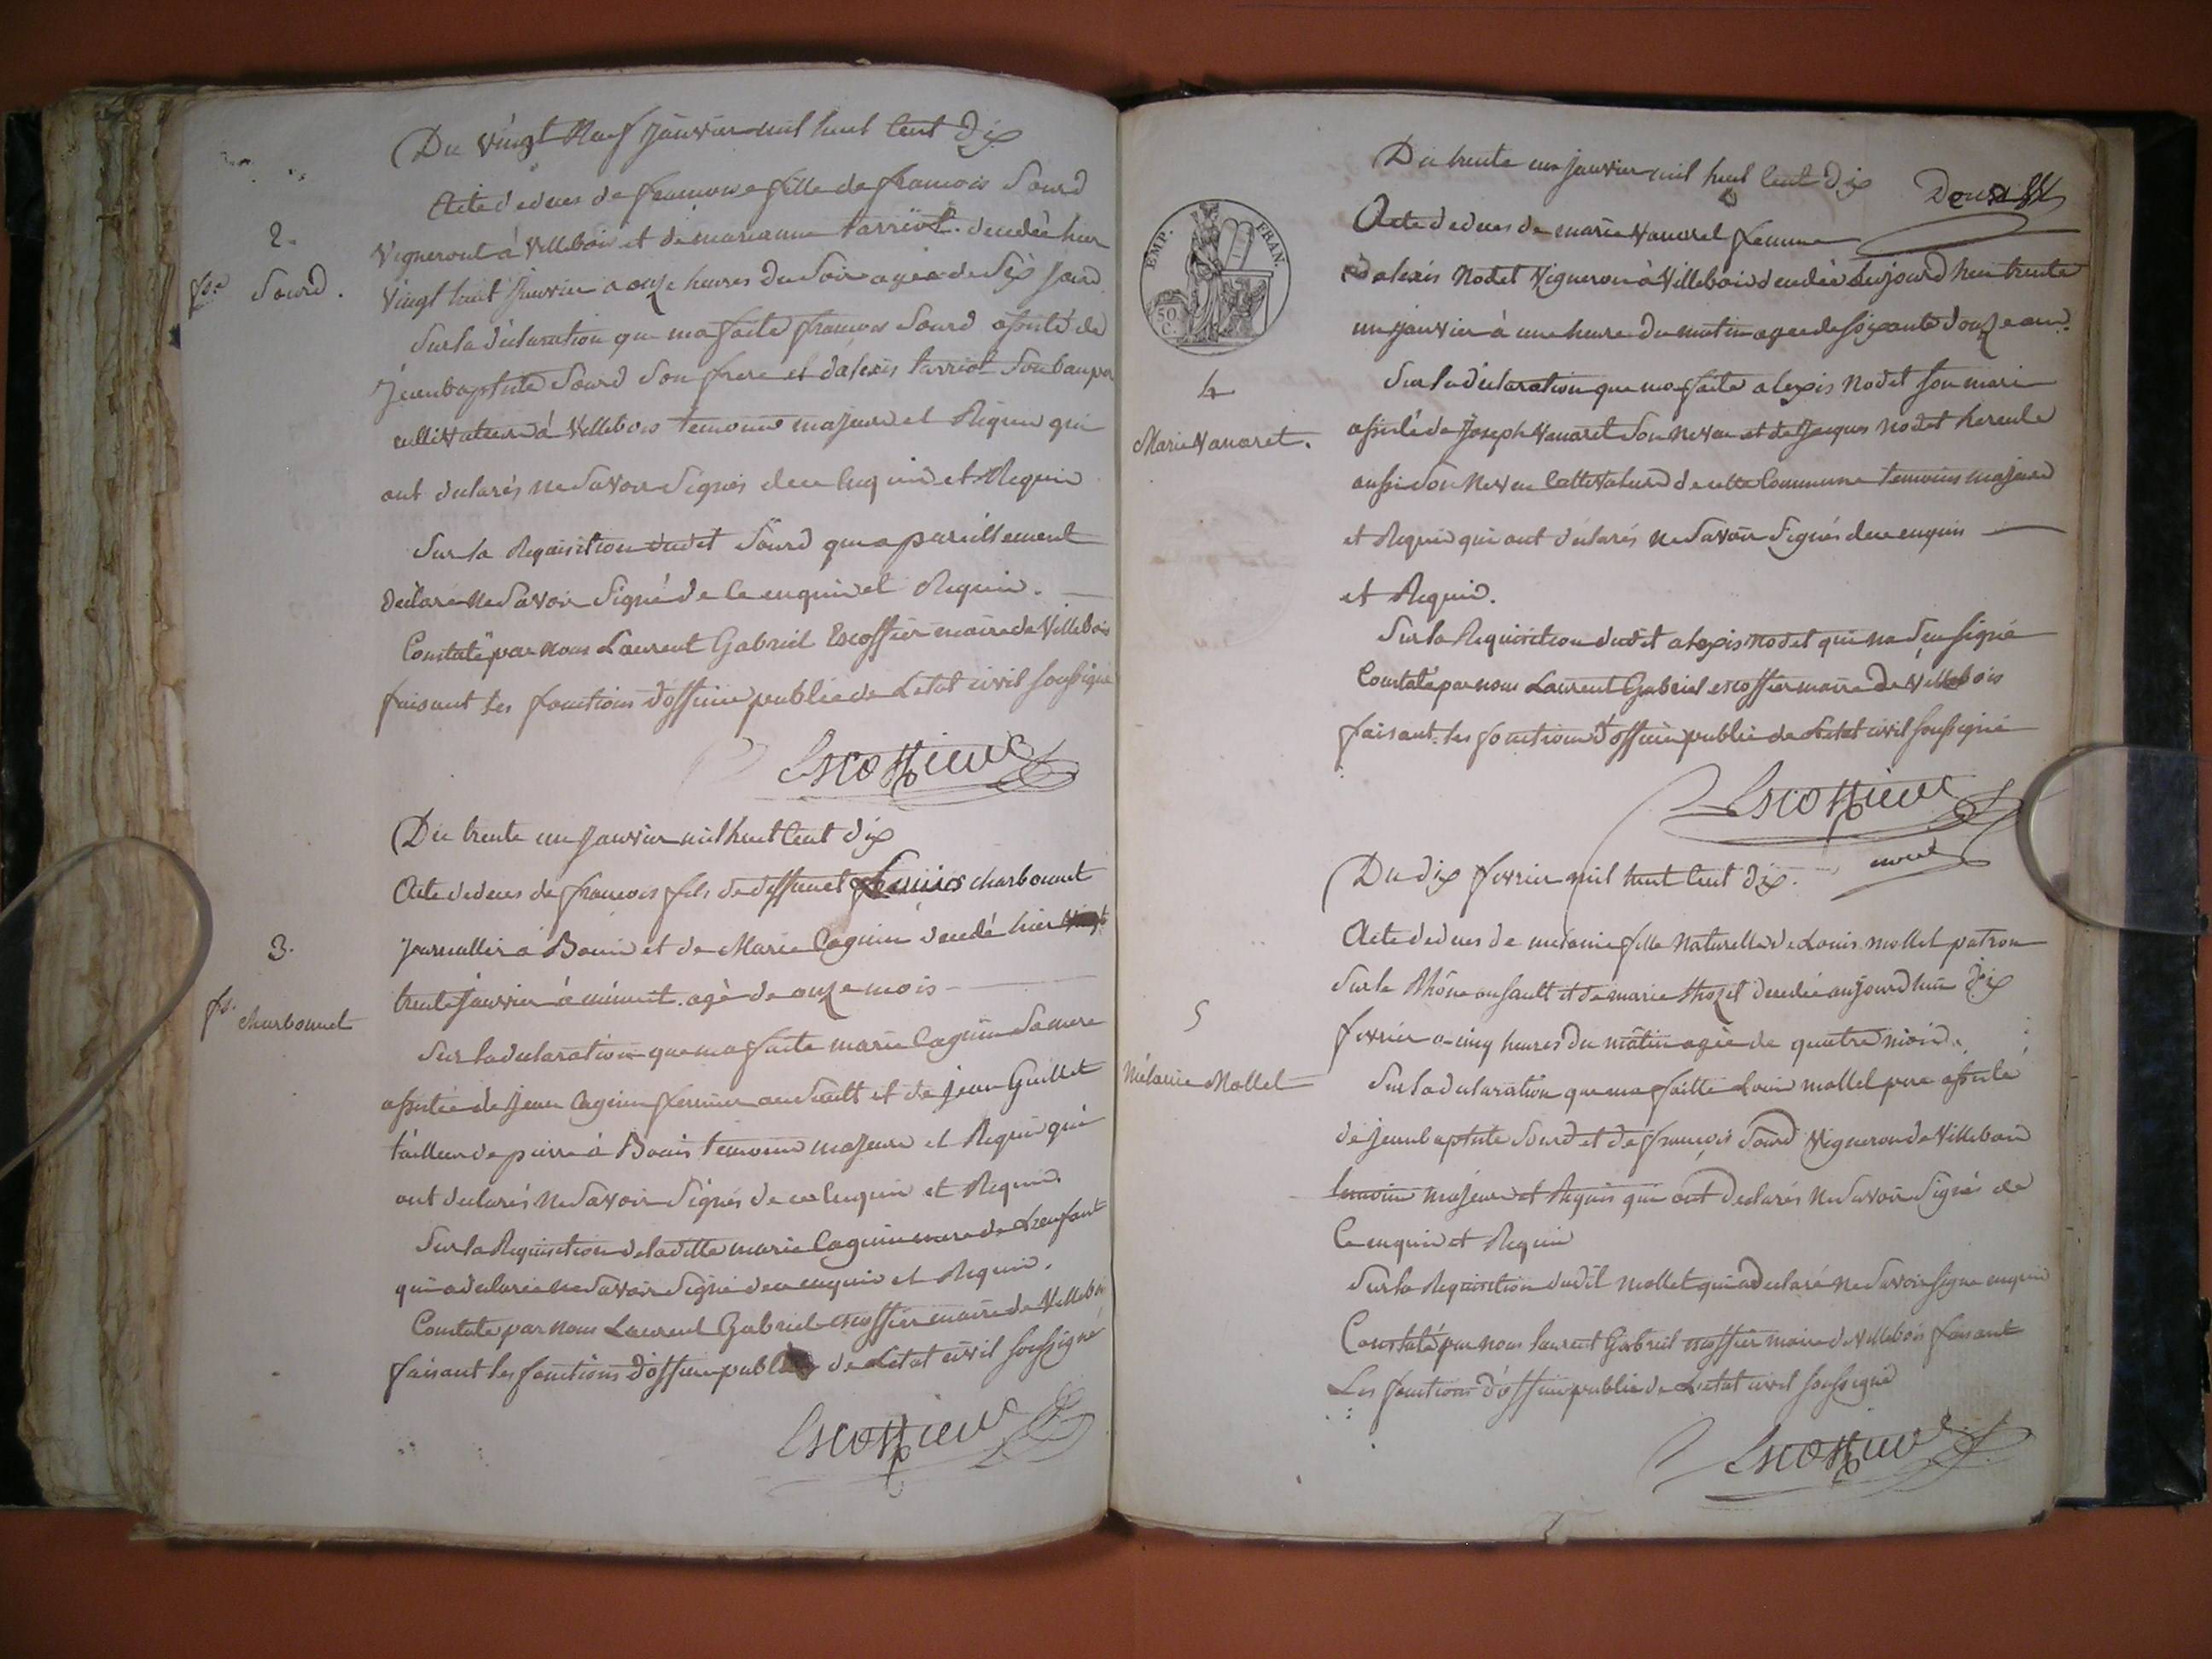 Du vingt Neuf janvier mil huit Cent dix
Acte de deces de francoise fille de francois Sourd
2.
Vigneront à Villebois et de marianne tarriot. decedée hier
fse Sourd.
Vingt huit janvier a onze heures du Soir agée de Six jours
Sur la déclaration que ma faite francois Sourd assisté de
Jeanbaptiste Sourd Son frere et d'alexis tarriot Son beau per
cultivateurs à Villebois temoins majeurs et Requis qui
ont declarés ne Savoir Signés de ce Enquis et Requis
Sur la Requisition dudit Sourd qui a pareillement
déclaré ne Savoir Signé de ce enquis et Requis.
Constaté par nous Laurent Gabriel Escoffier maire de Villebois
faisant les fonctions d'officier public de Letat civil soussigné
Escoffier
Du trente un janvier mil huit Cent dix
Acte de deces de francois fils de deffunct charbonnet
3.
journallier à Bouis et de Marie Caguin decedé hier
fs. charbonnet
trente janvier à minuit. agé de onze mois
Sur la declaration que ma faite marie Caguin Sa mere
assistée de jean Caguin fermier au Sault et de jean Guillet
tailleur de pierre à Bouis temoins majeurs et Requis qui
ont declarés ne Savoir Signés de ce Enquis et Requis.
Sur la Requisition de laditte marie Caguin mere de L'enfant
qui a declarée ne Savoir Signé de ce enquis et Requis.
Constaté par nous Laurent Gabriel escoffier maire de Villebois
faisant les fonctions d'officier public de Letat civil soussigné
Escoffier
Du trente un janvier mil huit Cent dix
EMP. FRAN.
50 C.
Acte de deces de marie Vanaret femme
d'alexis Nodet Vigneron à Villebois decedée aujourd'hui trente
un janvier à une heure du matin agée de soixante douze ans.
4
Sur la declaration que ma faite alexis Nodet son mari
Marie Vanaret.
assisté de Joseph Vanaret Son Neveu et de Jacques Nodet hercule
aussi Son Neveu Cultivateurs de cette Commune temoins majeurs
et Requis qui ont declarés ne Savoir Signés de ce enquis
et Requis.
Sur la Requisition dudit alexis Nodet qui na Seu signé
Constaté par nous Laurent Gabriel escoffier maire de Villebois
faisant les fonctions d'officier public de Letat civil soussigné
Escoffier
Du dix fevrier mil huit Cent dix.
Acte de deces de melanie fille Naturelle de Louis mollet patron
Sur le Rhône au Sault et de marie thozet decedée aujourd'hui dix
fevrier a cinq heures du matin agée de quatre mois.
5
Mélanie Mollet
Sur la declaration que ma faitte Louis mollet pere assisté
de jeanbaptiste Sourd et de francois Sourd Vignerons de Villebois
temoins majeurs et Requis qui ont declarés ne Savoir Signés de
Ce enquis et Requis
Sur la Requisition dudit mollet qui a declaré ne Savoir signe enquis
Constaté par nous laurent Gabriel escoffier maire de Villebois faisant
Les fonctions d'officier public de L'etat civil soussigné
Escoffier